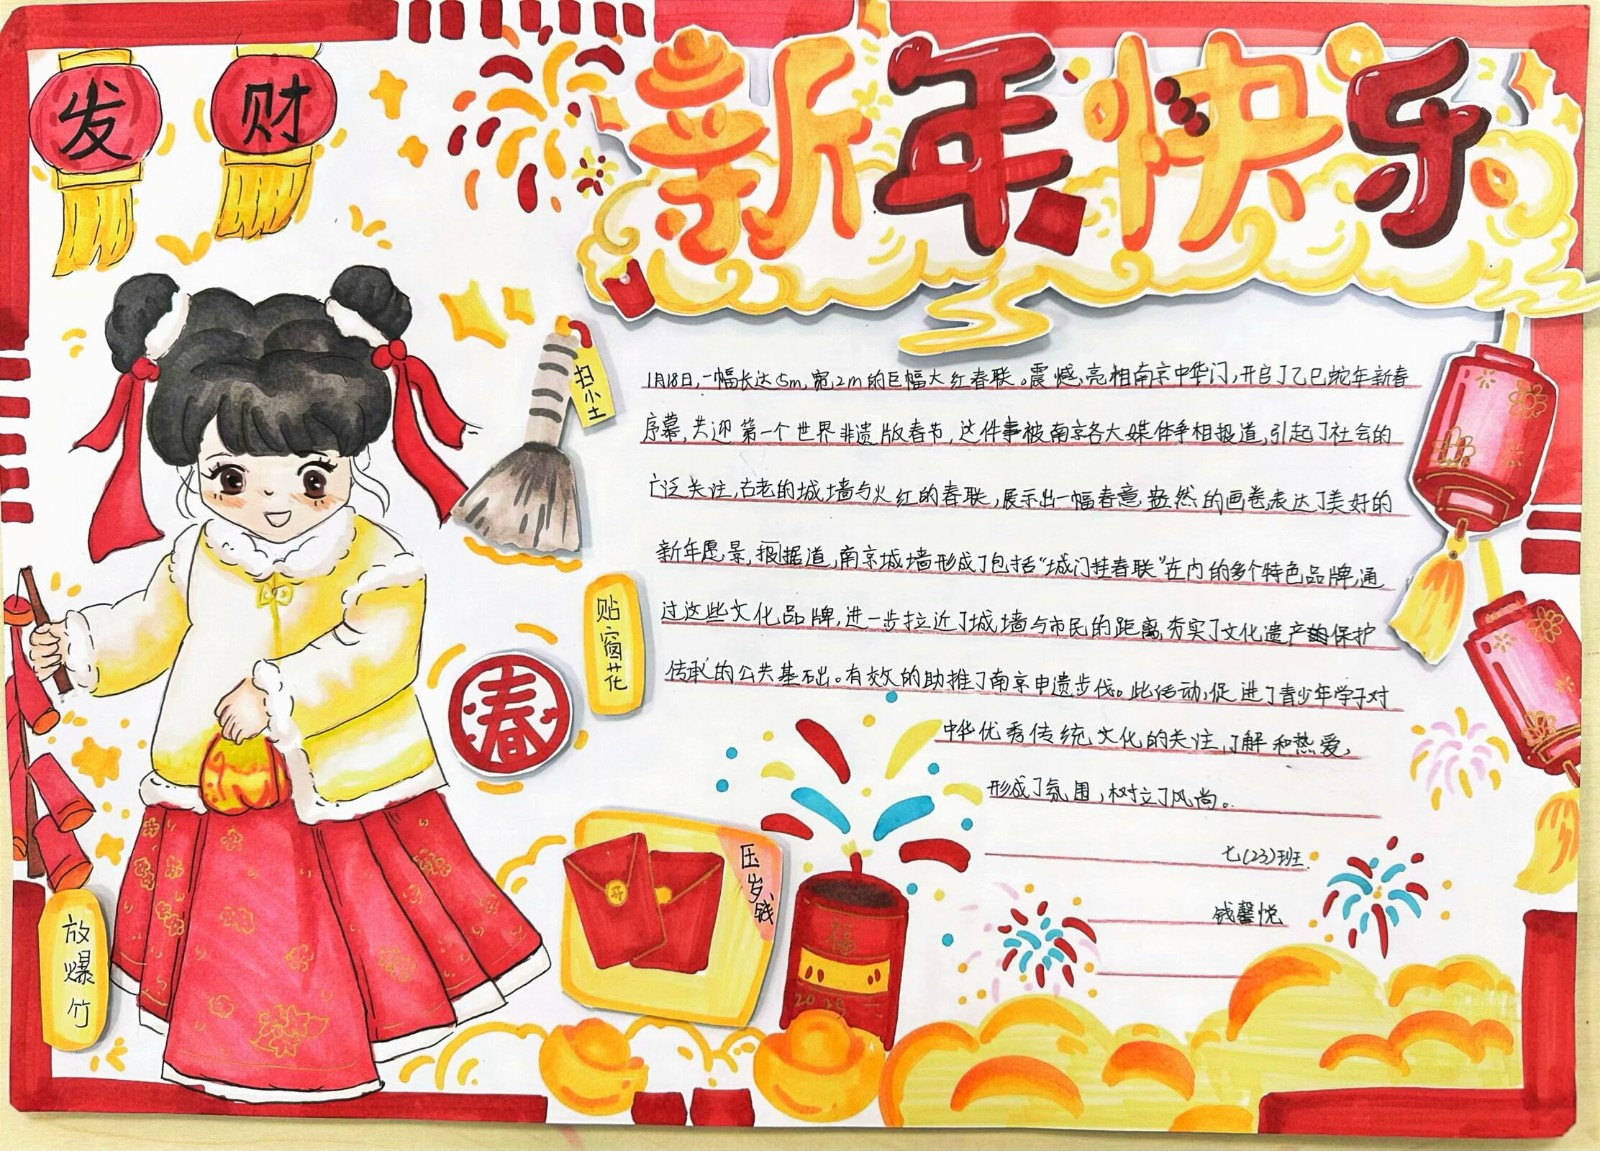 发 财
新年快乐
扫尘土
贴窗花
春
压岁钱
放爆竹
福
2025
1月18日,一幅长达5m,宽,2m的巨幅大红春联。震憾,亮相南京中华门,开启了乙巳蛇年新春
序幕,共迎第一个世界非遗版春节,这件事被南京各大媒体争相报道,引起了社会的
广泛关注,古老的城墙与火红的春联,展示出一幅春意盎然的画卷表达了美好的
新年愿景,据报道,南京城墙形成了包括“城门挂春联”在内的多个特色品牌,通
过这些文化品牌,进一步拉近了城墙与市民的距离,夯实了文化遗产的保护
传承的公共基础。有效的助推了南京申遗步伐。此活动,促进了青少年学子对
中华优秀传统文化的关注,了解和热爱,
形成了氛围,树立了风尚。
七(23)班
钱馨悦